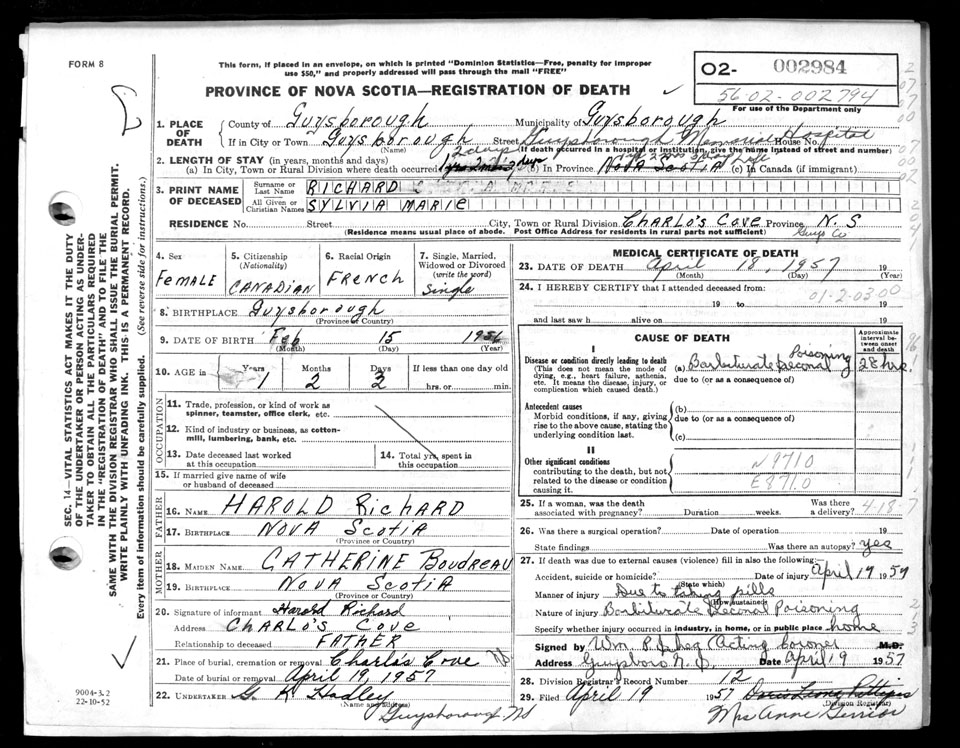 FORM 8
This form, if placed in an envelope, on which is printed "Dominion Statistics—Free, penalty for improper
use $50," and properly addressed will pass through the mail "FREE"
PROVINCE OF NOVA SCOTIA—REGISTRATION OF DEATH
O2- 002984
56-02-002794
For use of the Department only
SEC. 14—VITAL STATISTICS ACT MAKES IT THE DUTY
OF THE UNDERTAKER OR PERSON ACTING AS UNDER-
TAKER TO OBTAIN ALL THE PARTICULARS REQUIRED
IN THE "REGISTRATION OF DEATH" AND TO FILE THE
SAME WITH THE DIVISION REGISTRAR WHO SHALL ISSUE THE BURIAL PERMIT.
WRITE PLAINLY WITH UNFADING INK. THIS IS A PERMANENT RECORD.
Every item of information should be carefully supplied. (See reverse side for instructions.)
1. PLACE OF DEATH
County of Guysborough Municipality of Guysborough
If in City or Town Guysborough Street Guysborough Memorial Hospital House No.
(Name) (If death occurred in a hospital or institution, give the name instead of street and number)
2. LENGTH OF STAY (in years, months and days)
(a) In City, Town or Rural Division where death occurred 2 days (b) In Province Nova Scotia (c) In Canada (if immigrant) Life
3. PRINT NAME OF DECEASED
Surname or Last Name RICHARD
All Given or Christian Names SYLVIA MARIE
RESIDENCE No. Street City, Town or Rural Division CHARLO'S COVE Province N.S
(Residence means usual place of abode. Post Office Address for residents in rural parts not sufficient) Guys Co
4. Sex FEMALE
5. Citizenship (Nationality) CANADIAN
6. Racial Origin FRENCH
7. Single, Married, Widowed or Divorced (write the word) Single
8. BIRTHPLACE Guysborough
(Province or Country)
9. DATE OF BIRTH Feb 15 1956
(Month) (Day) (Year)
10. AGE in Years 1 Months 2 Days 3 If less than one day old
hrs. or min.
OCCUPATION
11. Trade, profession, or kind of work as
spinner, teamster, office clerk, etc.
12. Kind of industry or business, as cotton-
mill, lumbering, bank, etc.
13. Date deceased last worked
at this occupation
14. Total yrs. spent in
this occupation
15. If married give name of wife
or husband of deceased
FATHER
16. NAME HAROLD RICHARD
17. BIRTHPLACE NOVA SCOTIA
(Province or Country)
MOTHER
18. MAIDEN NAME CATHERINE BOUDREAU
19. BIRTHPLACE NOVA SCOTIA
(Province or Country)
20. Signature of informant Harold Richard
Address CHARLO'S COVE
Relationship to deceased FATHER
21. Place of burial, cremation or removal Charlo's Cove NS
Date of burial or removal April 19, 1957
22. UNDERTAKER G. K Hadley
(Name and Address)
Guysborough NS
9004-3.2
22-10-52
MEDICAL CERTIFICATE OF DEATH
23. DATE OF DEATH April 18, 1957 19
(Month) (Day) (Year)
24. I HEREBY CERTIFY that I attended deceased from:
19 to 19
01-2-03-00
and last saw h alive on 19
CAUSE OF DEATH
Approximate interval between onset and death
I
Disease or condition directly leading to death
(This does not mean the mode of dying, e.g., heart failure, asthenia, etc. It means the disease, injury, or complication which caused death.)
(a) Barbiturate Seconal Poisoning 28 hrs.
due to (or as a consequence of)
Antecedent causes
Morbid conditions, if any, giving rise to the above cause, stating the underlying condition last.
(b)
due to (or as a consequence of)
(c)
II
Other significant conditions
contributing to the death, but not related to the disease or condition causing it.
N9710
E8710
25. If a woman, was the death
associated with pregnancy? Duration weeks. Was there a delivery?
4-18-7
26. Was there a surgical operation? Date of operation 19
State findings Was there an autopsy? yes
27. If death was due to external causes (violence) fill in also the following:
Accident, suicide or homicide? Date of injury April 17 1957
(State which)
Manner of injury Due to taking pills
(How sustained)
Nature of injury Barbiturate Seconal Poisoning
Specify whether injury occurred in industry, in home, or in public place home
Signed by Wm Acting Coroner M.D.
Address Guysboro N.S. Date April 19 1957
28. Division Registrar's Record Number 12
29. Filed April 19 1957
(Division Registrar)
Mrs Anne